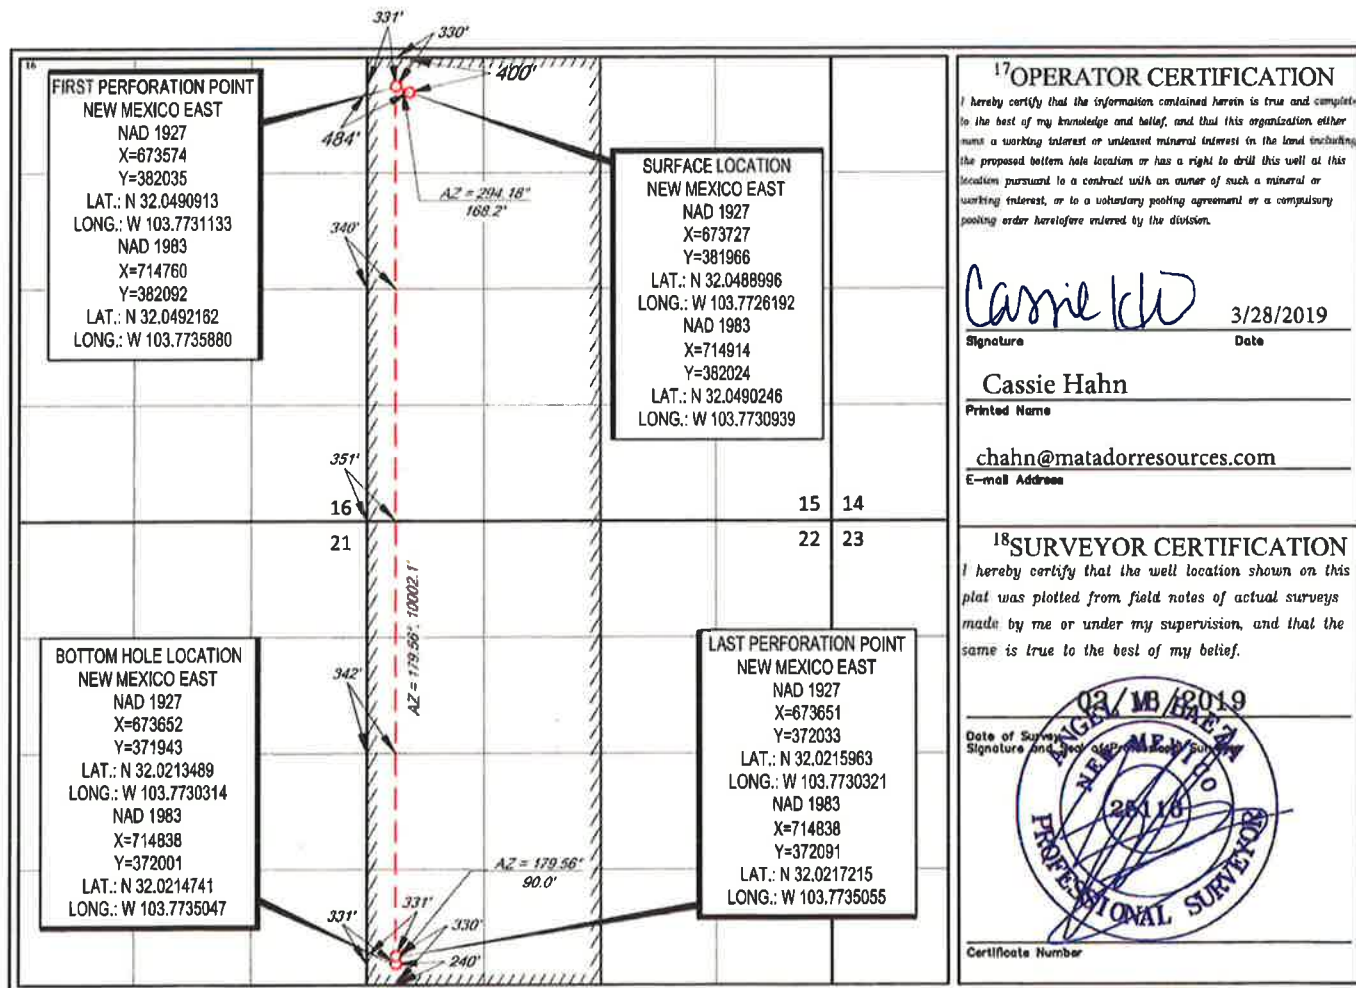 16
331'
330'
400'
484'
FIRST PERFORATION POINT
NEW MEXICO EAST
NAD 1927
X=673574
Y=382035
LAT.: N 32.0490913
LONG.: W 103.7731133
NAD 1983
X=714760
Y=382092
LAT.: N 32.0492162
LONG.: W 103.7735880
AZ = 294.18°
168.2'
SURFACE LOCATION
NEW MEXICO EAST
NAD 1927
X=673727
Y=381966
LAT.: N 32.0488996
LONG.: W 103.7726192
NAD 1983
X=714914
Y=382024
LAT.: N 32.0490246
LONG.: W 103.7730939
340'
351'
16
15 14
21
22 23
AZ = 179.56°, 10002.1'
342'
BOTTOM HOLE LOCATION
NEW MEXICO EAST
NAD 1927
X=673652
Y=371943
LAT.: N 32.0213489
LONG.: W 103.7730314
NAD 1983
X=714838
Y=372001
LAT.: N 32.0214741
LONG.: W 103.7735047
LAST PERFORATION POINT
NEW MEXICO EAST
NAD 1927
X=673651
Y=372033
LAT.: N 32.0215963
LONG.: W 103.7730321
NAD 1983
X=714838
Y=372091
LAT.: N 32.0217215
LONG.: W 103.7735055
AZ = 179.56°
90.0'
331'
331'
330'
240'
17OPERATOR CERTIFICATION
I hereby certify that the information contained herein is true and complete
to the best of my knowledge and belief, and that this organization either
owns a working interest or unleased mineral interest in the land including
the proposed bottom hole location or has a right to drill this well at this
location pursuant to a contract with an owner of such a mineral or
working interest, or to a voluntary pooling agreement or a compulsory
pooling order heretofore entered by the division.
Cassie
3/28/2019
Signature Date
Cassie Hahn
Printed Name
chahn@matadorresources.com
E-mail Address
18SURVEYOR CERTIFICATION
I hereby certify that the well location shown on this
plat was plotted from field notes of actual surveys
made by me or under my supervision, and that the
same is true to the best of my belief.
Date of Survey
Signature and Seal of Professional Surveyor
ANGEL M. BAEZA
NEW MEXICO
PROFESSIONAL SURVEYOR
Certificate Number